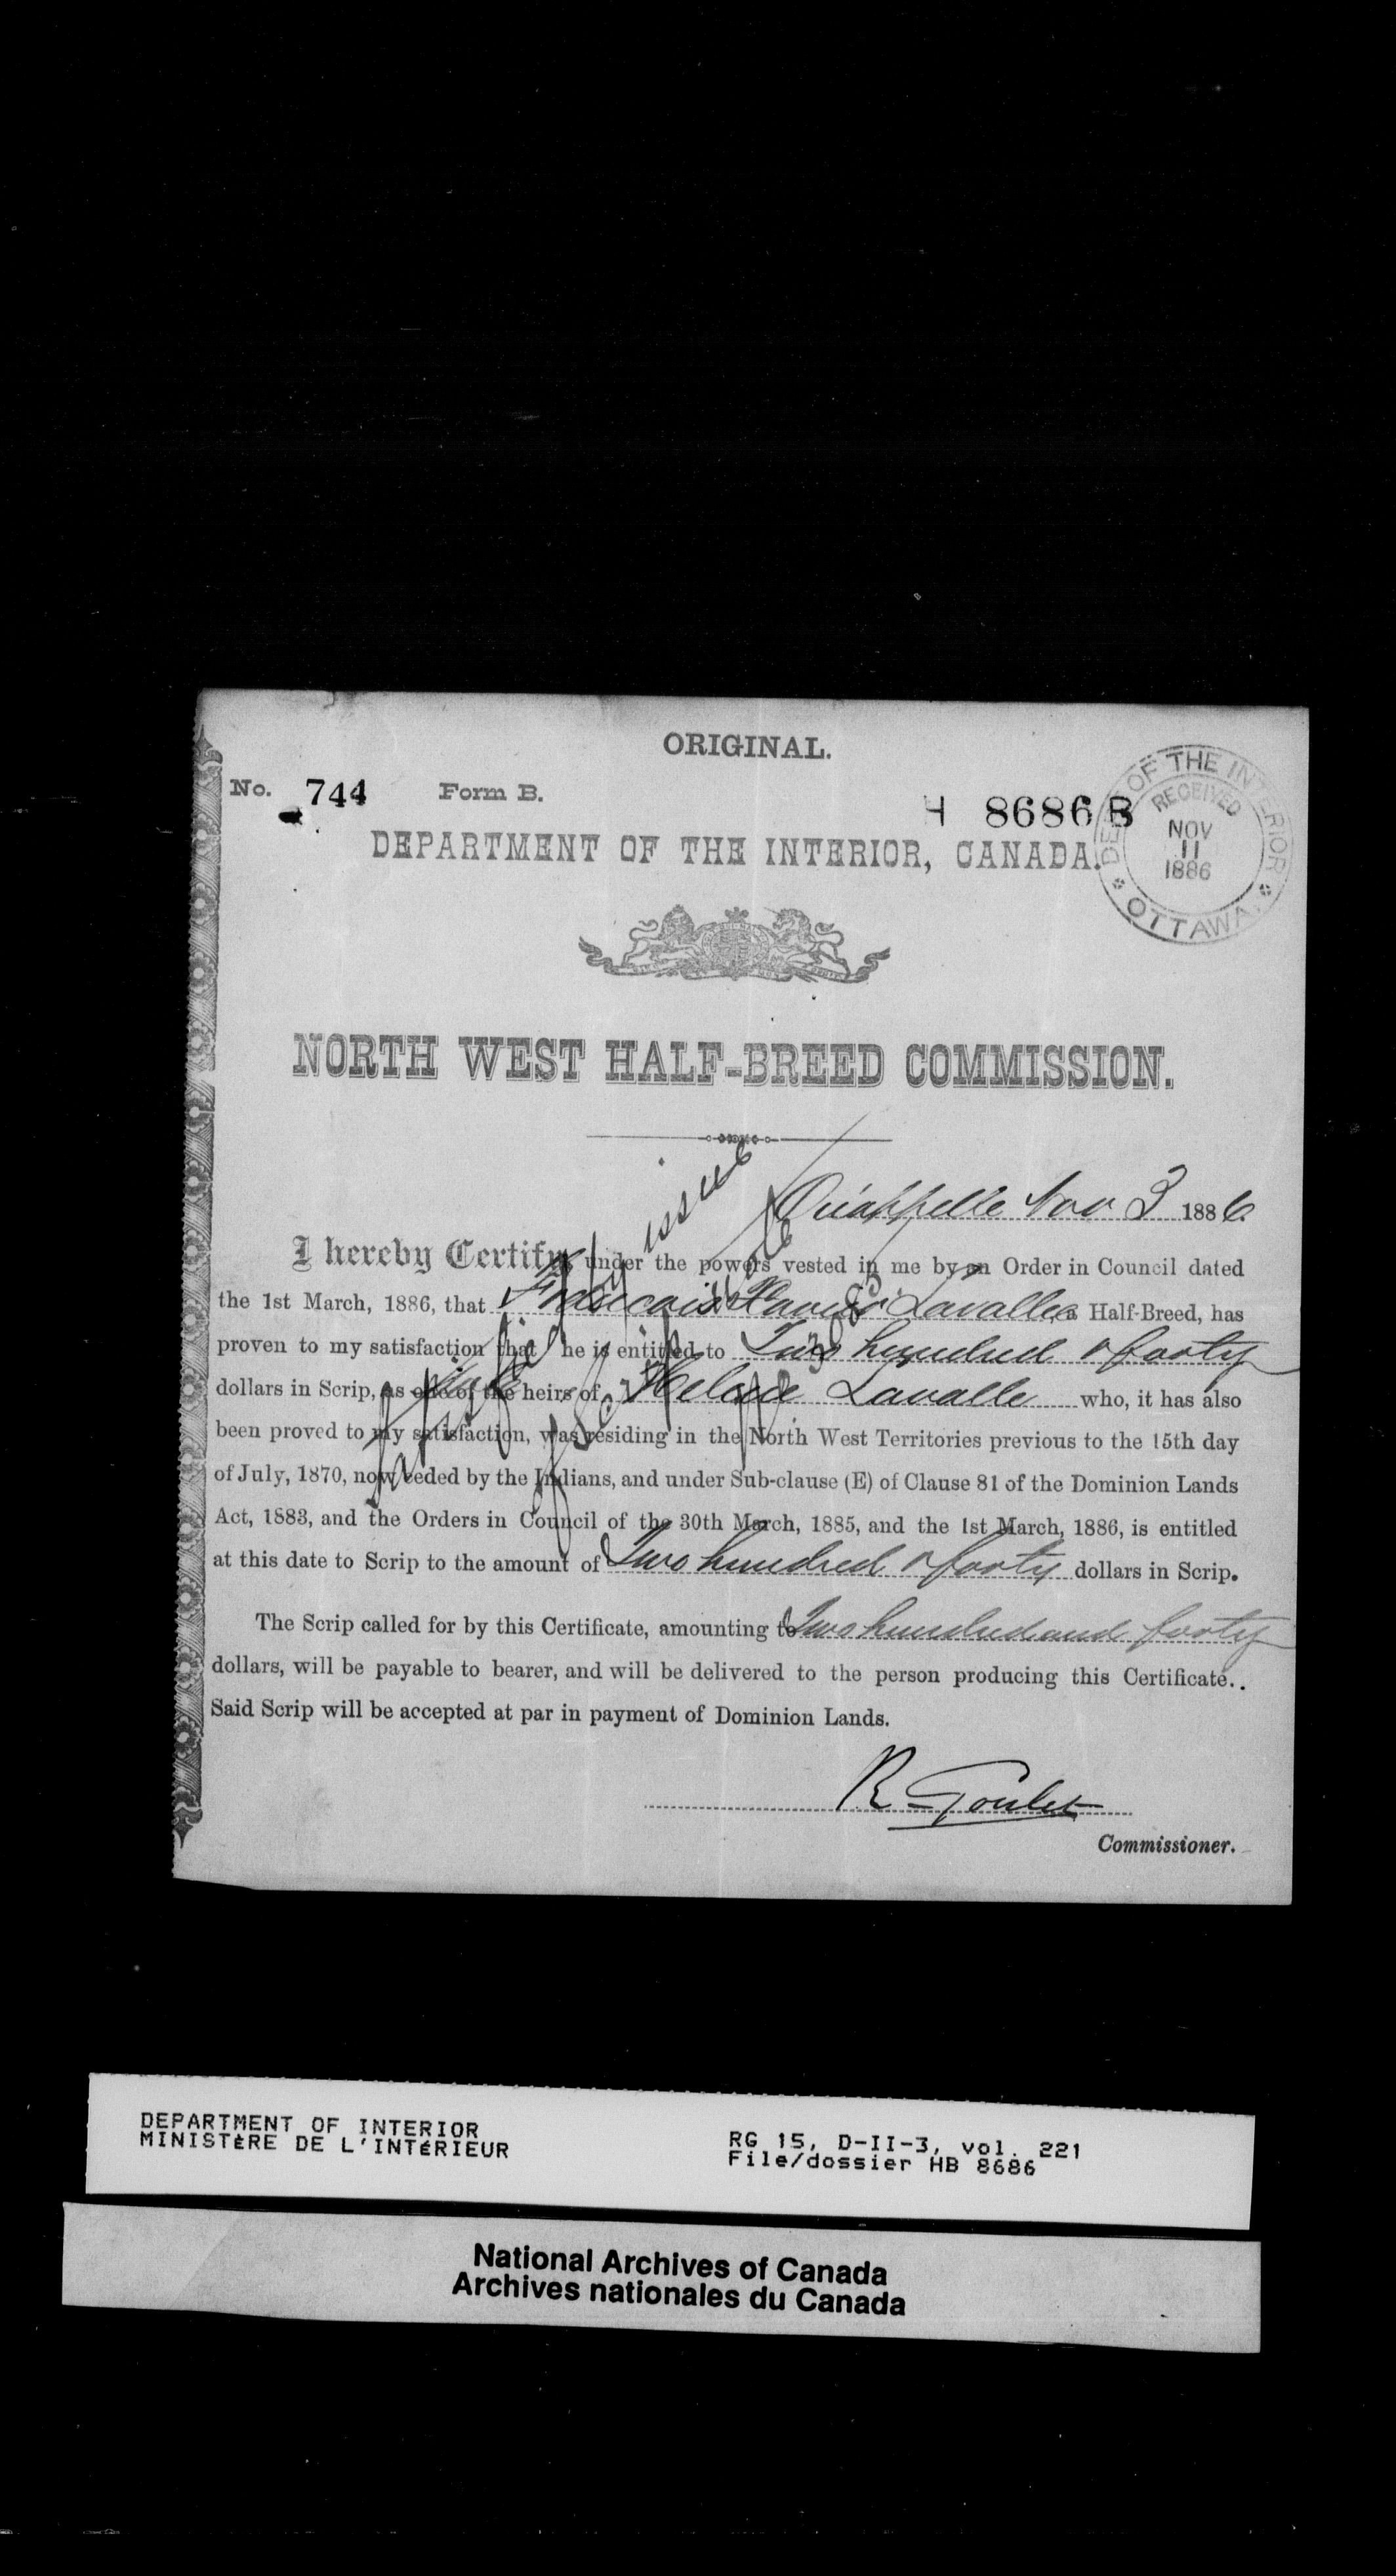 ORIGINAL.
No. 744 Form B.
H 8686 B
DEPT OF THE INTERIOR
RECEIVED
NOV
11
1886
OTTAWA
DEPARTMENT OF THE INTERIOR, CANADA.
NORTH WEST HALF-BREED COMMISSION.
Qu'appelle Nov 3 1886.
I hereby Certify under the powers vested in me by an Order in Council dated
the 1st March, 1886, that Francois Xavier Lavallee a Half-Breed, has
proven to my satisfaction that he is entitled to Two hundred & forty
dollars in Scrip, as one of the heirs of Helene Lavalle who, it has also
been proved to my satisfaction, was residing in the North West Territories previous to the 15th day
of July, 1870, now ceded by the Indians, and under Sub-clause (E) of Clause 81 of the Dominion Lands
Act, 1883, and the Orders in Council of the 30th March, 1885, and the 1st March, 1886, is entitled
at this date to Scrip to the amount of Two hundred & forty dollars in Scrip.
The Scrip called for by this Certificate, amounting to Two hundred and forty
dollars, will be payable to bearer, and will be delivered to the person producing this Certificate.
Said Scrip will be accepted at par in payment of Dominion Lands.
R Goulet
Commissioner.
issue
DEPARTMENT OF INTERIOR
MINISTÈRE DE L'INTÉRIEUR
RG 15, D-II-3, vol. 221
File/dossier HB 8686
National Archives of Canada
Archives nationales du Canada